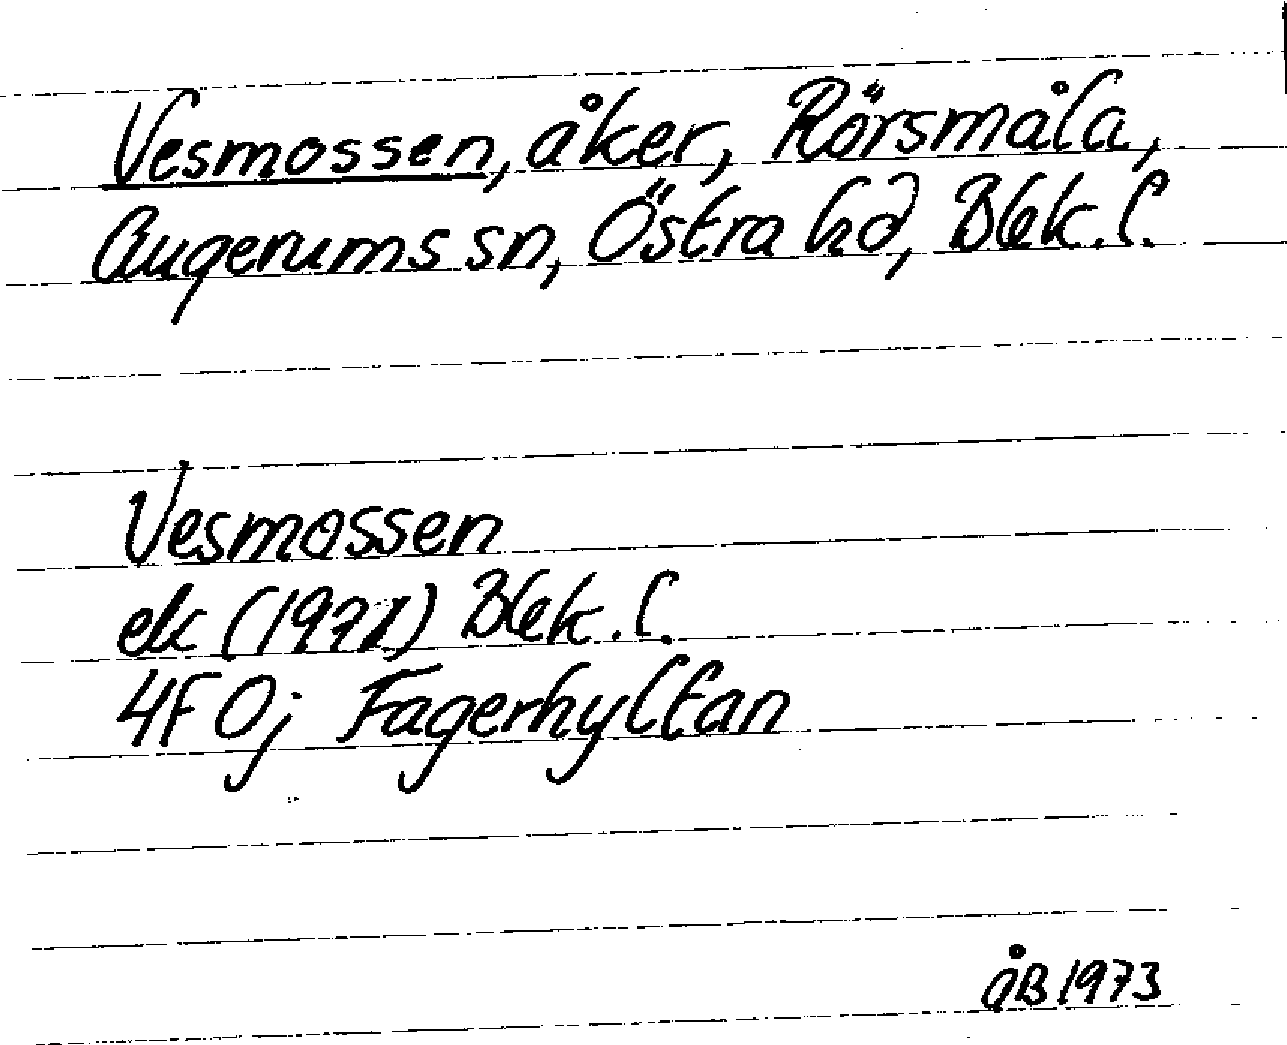 Vesmossen, åker, Rörsmåla,
Augerums sn, Östra hd, Blek. l.
Vesmossen
ek (1971) Blek. l.
4F 0j Fagerhyltan
ÅB 1973